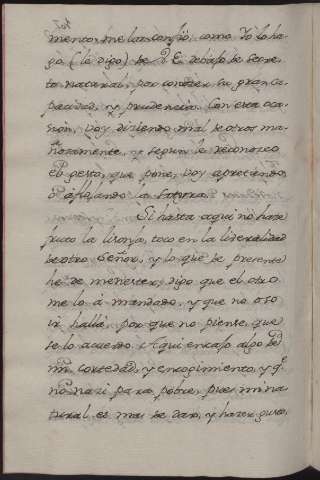 mento, me las confio, como Yo lo ha-
go (le digo) de V.E. debaxo de secre-
to natural, por conocer su gran Ca-
pacidad, y prudencia. Con esta oca-
sion, voy diziendo mal de otros ma-
ñosamente, y segun le reconozco
el gesto, que pone, voy apretando,
ò afloxando la
Si hasta aqui no haze
fruto la lisonja, toco en la liberalidad
de otro Señor, y lo que de presente
he de menester, digo que el otro
me lo à mandado, y que no oso
ir hallà, por que no piense, que
se lo acuerdo. Aqui encaxo algo de
mi cortedad, y encogimiento, y q.e
no naci para pobre, pues mi na-
tural es mas de dar, y hazer gusto,